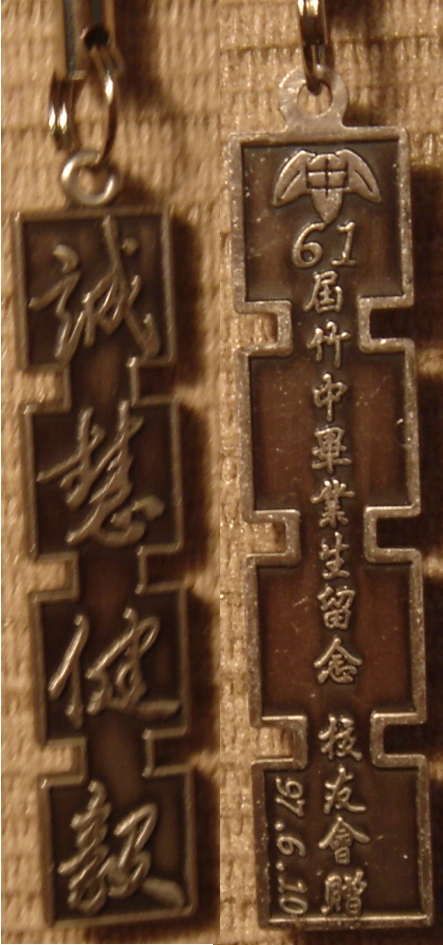 誠慧健毅
中
61屆竹中畢業生留念
校友會贈
97.6.10